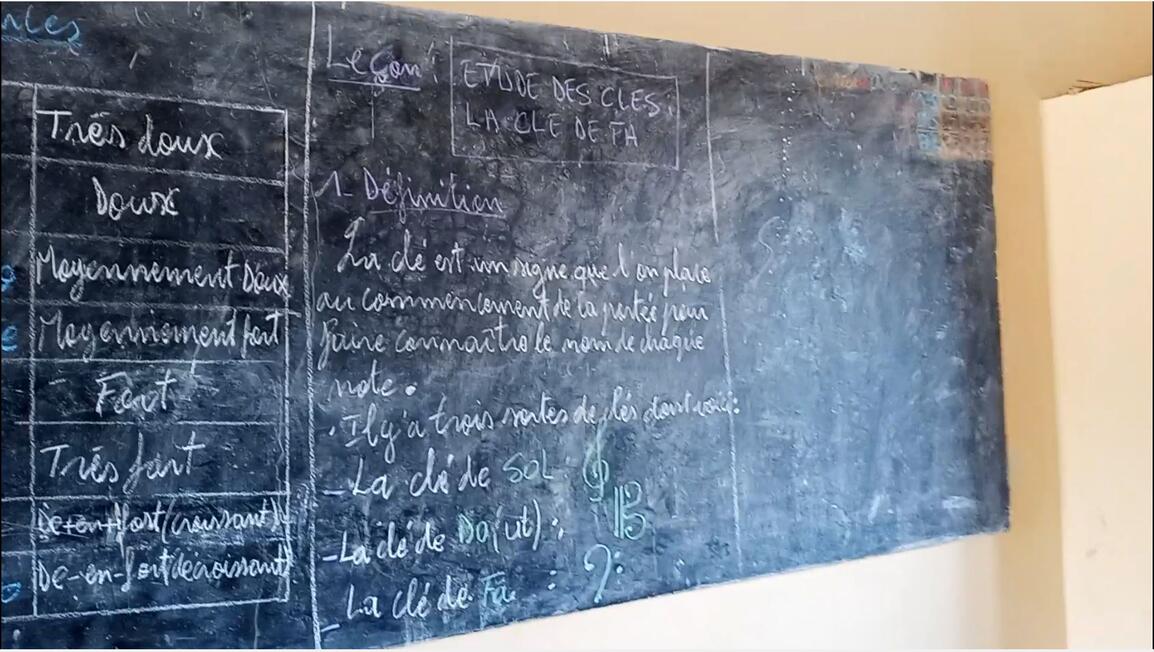 Très doux
Doux
Moyennement Doux
Moyennement fort
Fort
Très fort
(croissant)
De-en-fort(décroissant)
Leçon :
ETUDE DES CLES :
LA CLE DE FA
1. Définition
La clé est un signe que l'on place
au commencement de la portée pour
faire connaître le nom de chaque
note.
. Il y'a trois sortes de clés dont voici :
- La clé de SOL :
- La clé de Do(ut) :
- La clé de Fa :